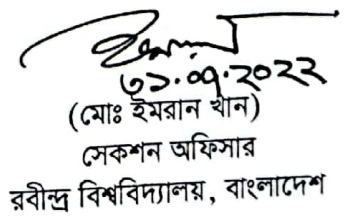 ৩১.০৭.২০২২
(মোঃ ইমরান খান)
সেকশন অফিসার
রবীন্দ্র বিশ্ববিদ্যালয়, বাংলাদেশ